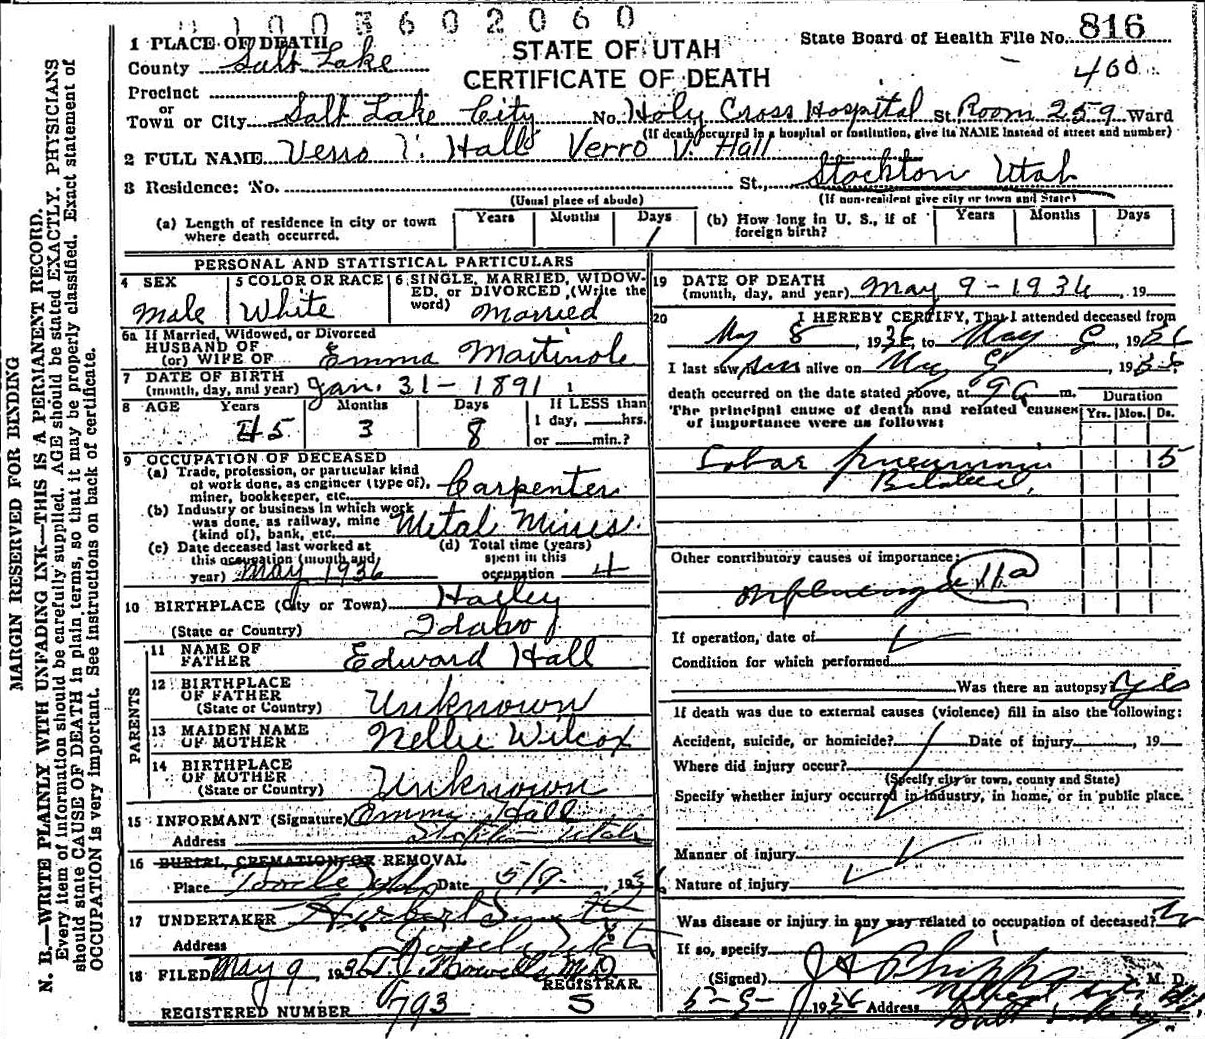 1003602060
1 PLACE OF DEATH
County Salt Lake
STATE OF UTAH
CERTIFICATE OF DEATH
State Board of Health File No. 816
400
Precinct
or
Town or City Salt Lake City No. Holy Cross Hospital St. Room 259 Ward
(If death occurred in a hospital or institution, give its NAME instead of street and number)
2 FULL NAME Verro V. Hall Verro V. Hall
3 Residence: No. St., Stockton Utah
(Usual place of abode) (If non-resident give city or town and State)
(a) Length of residence in city or town where death occurred. Years Months Days 1
(b) How long in U. S., if of foreign birth? Years Months Days
PERSONAL AND STATISTICAL PARTICULARS
4 SEX Male
5 COLOR OR RACE White
6 SINGLE, MARRIED, WIDOWED, or DIVORCED, (Write the word) Married
6a If Married, Widowed, or Divorced
HUSBAND OF
(or) WIFE OF Emma
7 DATE OF BIRTH
(month, day, and year) Jan. 31 - 1891
8 AGE Years Months Days If LESS than
45 3 8 1 day, hrs.
or min.?
9 OCCUPATION OF DECEASED
(a) Trade, profession, or particular kind of work done, as engineer (type of), miner, bookkeeper, etc. Carpenter
(b) Industry or business in which work was done, as railway, mine (kind of), bank, etc. Metal Mines
(c) Date deceased last worked at this occupation (month and year) May 1936
(d) Total time (years) spent in this occupation 4
10 BIRTHPLACE (City or Town) Hailey
(State or Country) Idaho
PARENTS
11 NAME OF FATHER Edward Hall
12 BIRTHPLACE OF FATHER
(State or Country) Unknown
13 MAIDEN NAME OF MOTHER Nellie Wilcox
14 BIRTHPLACE OF MOTHER
(State or Country) Unknown
15 INFORMANT (Signature) Emma Hall
Address Stockton Utah
16 BURIAL, CREMATION, OR REMOVAL
Place Tooele Utah Date 5/9- 1936
17 UNDERTAKER
Address Tooele Utah
18 FILED May 9 1936 M.D.
REGISTRAR
REGISTERED NUMBER 793 S
19 DATE OF DEATH
(month, day, and year) May 9 - 1936, 19
20 I HEREBY CERTIFY, That I attended deceased from
May 8, 1936, to May 9, 1936
I last saw him alive on May 9, 1936
death occurred on the date stated above, at 9 a m.
The principal cause of death and related causes of importance were as follows:
Duration
Yrs. Mos. Ds.
Lobar pneumonia 5
Bilateral
Other contributory causes of importance:
Influenza 11a
If operation, date of
Condition for which performed
Was there an autopsy? Yes
If death was due to external causes (violence) fill in also the following:
Accident, suicide, or homicide? Date of injury , 19
Where did injury occur?
(Specify city or town, county and State)
Specify whether injury occurred in industry, in home, or in public place.
Manner of injury
Nature of injury
Was disease or injury in any way related to occupation of deceased? No
If so, specify
(Signed) M. D.
5-9- 1936 Address
MARGIN RESERVED FOR BINDING
N. B.—WRITE PLAINLY WITH UNFADING INK—THIS IS A PERMANENT RECORD.
Every item of information should be carefully supplied. AGE should be stated EXACTLY. PHYSICIANS
should state CAUSE OF DEATH in plain terms, so that it may be properly classified. Exact statement of
OCCUPATION is very important. See instructions on back of certificate.